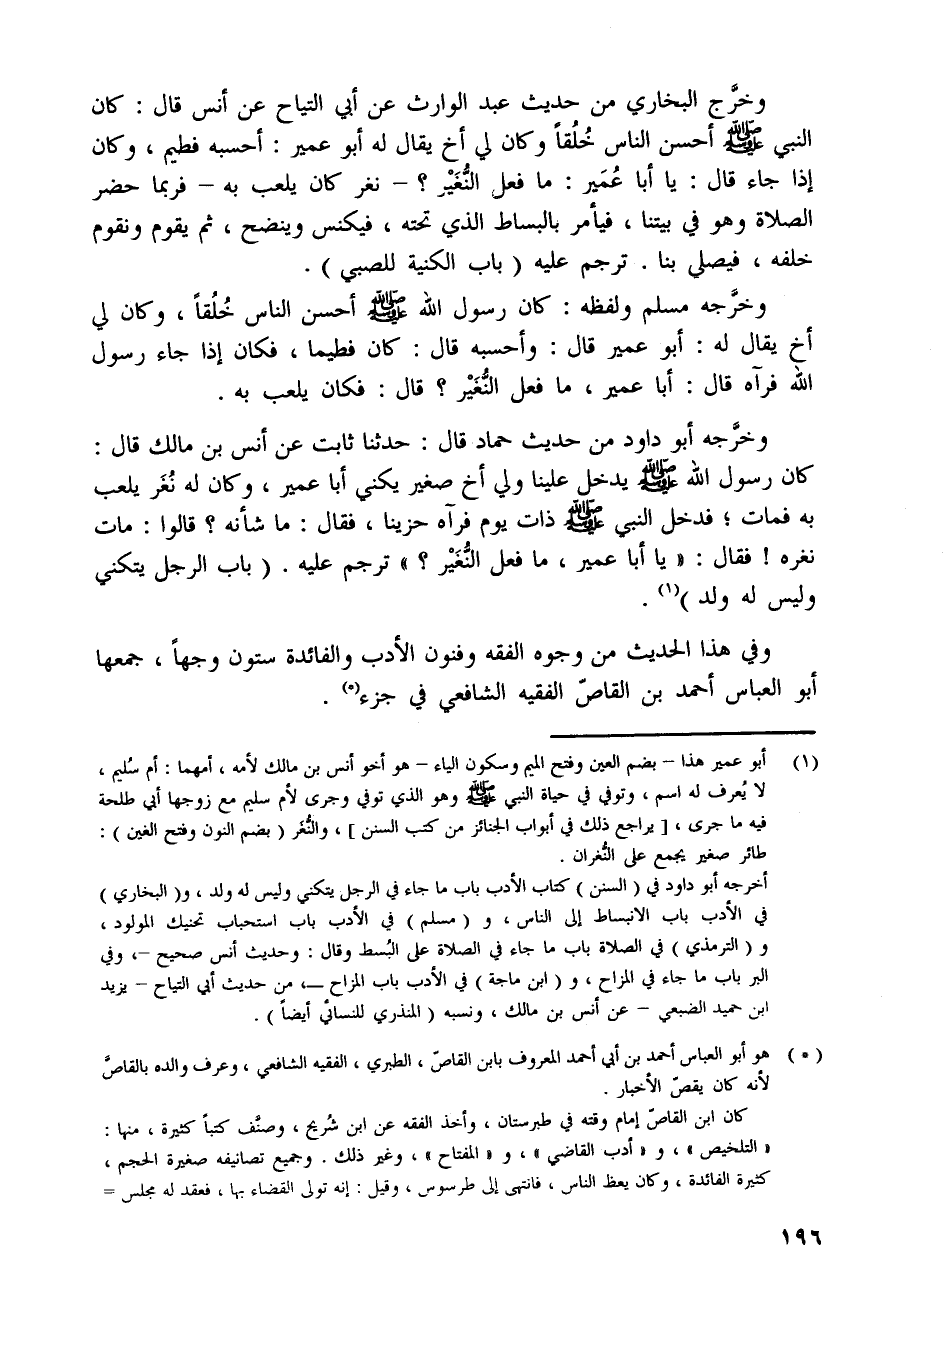 وخرَّج البخاري من حديث عبد الوارث عن أبي التياح عن أنس قال : كان
النبي ﷺ أحسن الناس خُلُقاً وكان لي أخ يقال له أبو عمير : أحسبه فطيم ، وكان
إذا جاء قال : يا أبا عُمَير : ما فعل النُّغَيْر ؟ – نغر كان يلعب به – فربما حضر
الصلاة وهو في بيتنا ، فيأمر بالبساط الذي تحته ، فيكنس وينضح ، ثم يقوم ونقوم
خلفه ، فيصلي بنا . ترجم عليه ( باب الكنية للصبي ) .
وخرَّجه مسلم ولفظه : كان رسول الله ﷺ أحسن الناس خُلُقاً ، وكان لي
أخ يقال له : أبو عمير قال : وأحسبه قال : كان فطيما ، فكان إذا جاء رسول
الله فرآه قال : أبا عمير ، ما فعل النُّغَيْر ؟ قال : فكان يلعب به .
وخرَّجه أبو داود من حديث حماد قال : حدثنا ثابت عن أنس بن مالك قال :
كان رسول الله ﷺ يدخل علينا ولي أخ صغير يكني أبا عمير ، وكان له نُغَر يلعب
به فمات ؛ فدخل النبي ﷺ ذات يوم فرآه حزينا ، فقال : ما شأنه ؟ قالوا : مات
نغره ! فقال : « يا أبا عمير ، ما فعل النُّغَيْر ؟ » ترجم عليه . ( باب الرجل يتكني
وليس له ولد )(١) .
وفي هذا الحديث من وجوه الفقه وفنون الأدب والفائدة ستون وجهاً ، جمعها
أبو العباس أحمد بن القاصّ الفقيه الشافعي في جزء(*) .
(١) أبو عمير هذا – بضم العين وفتح الميم وسكون الياء – هو أخو أنس بن مالك لأمه ، أمهما : أم سُليم ،
لا يُعرف له اسم ، وتوفي في حياة النبي ﷺ وهو الذي توفي وجرى لأم سليم مع زوجها أبي طلحة
فيه ما جرى ، [ يراجع ذلك في أبواب الجنائز من كتب السنن ] ، والنُّغَر ( بضم النون وفتح الغين ) :
طائر صغير يجمع على النُّغران .
أخرجه أبو داود في ( السنن ) كتاب الأدب باب ما جاء في الرجل يتكنى وليس له ولد ، و( البخاري )
في الأدب باب الانبساط إلى الناس ، و ( مسلم ) في الأدب باب استحباب تحنيك المولود ،
و ( الترمذي ) في الصلاة باب ما جاء في الصلاة على البُسط وقال : وحديث أنس صحيح –، وفي
البر باب ما جاء في المزاح ، و ( ابن ماجة ) في الأدب باب المزاح –، من حديث أبي التياح – يزيد
ابن حميد الضبعي – عن أنس بن مالك ، ونسبه ( المنذري للنسائي أيضاً ) .
( * ) هو أبو العباس أحمد بن أبي أحمد المعروف بابن القاصّ ، الطبري ، الفقيه الشافعي ، وعرف والده بالقاصَّ
لأنه كان يقصّ الأخبار .
كان ابن القاصّ إمام وقته في طبرستان ، وأخذ الفقه عن ابن سُريج ، وصنَّف كتباً كثيرة ، منها :
« التلخيص » ، و « أدب القاضي » ، و « المفتاح » ، وغير ذلك . وجميع تصانيفه صغيرة الحجم ،
كثيرة الفائدة ، وكان يعظ الناس ، فانتهى إلى طرسوس ، وقيل : إنه تولى القضاء بها ، فعقد له مجلس =
١٩٦